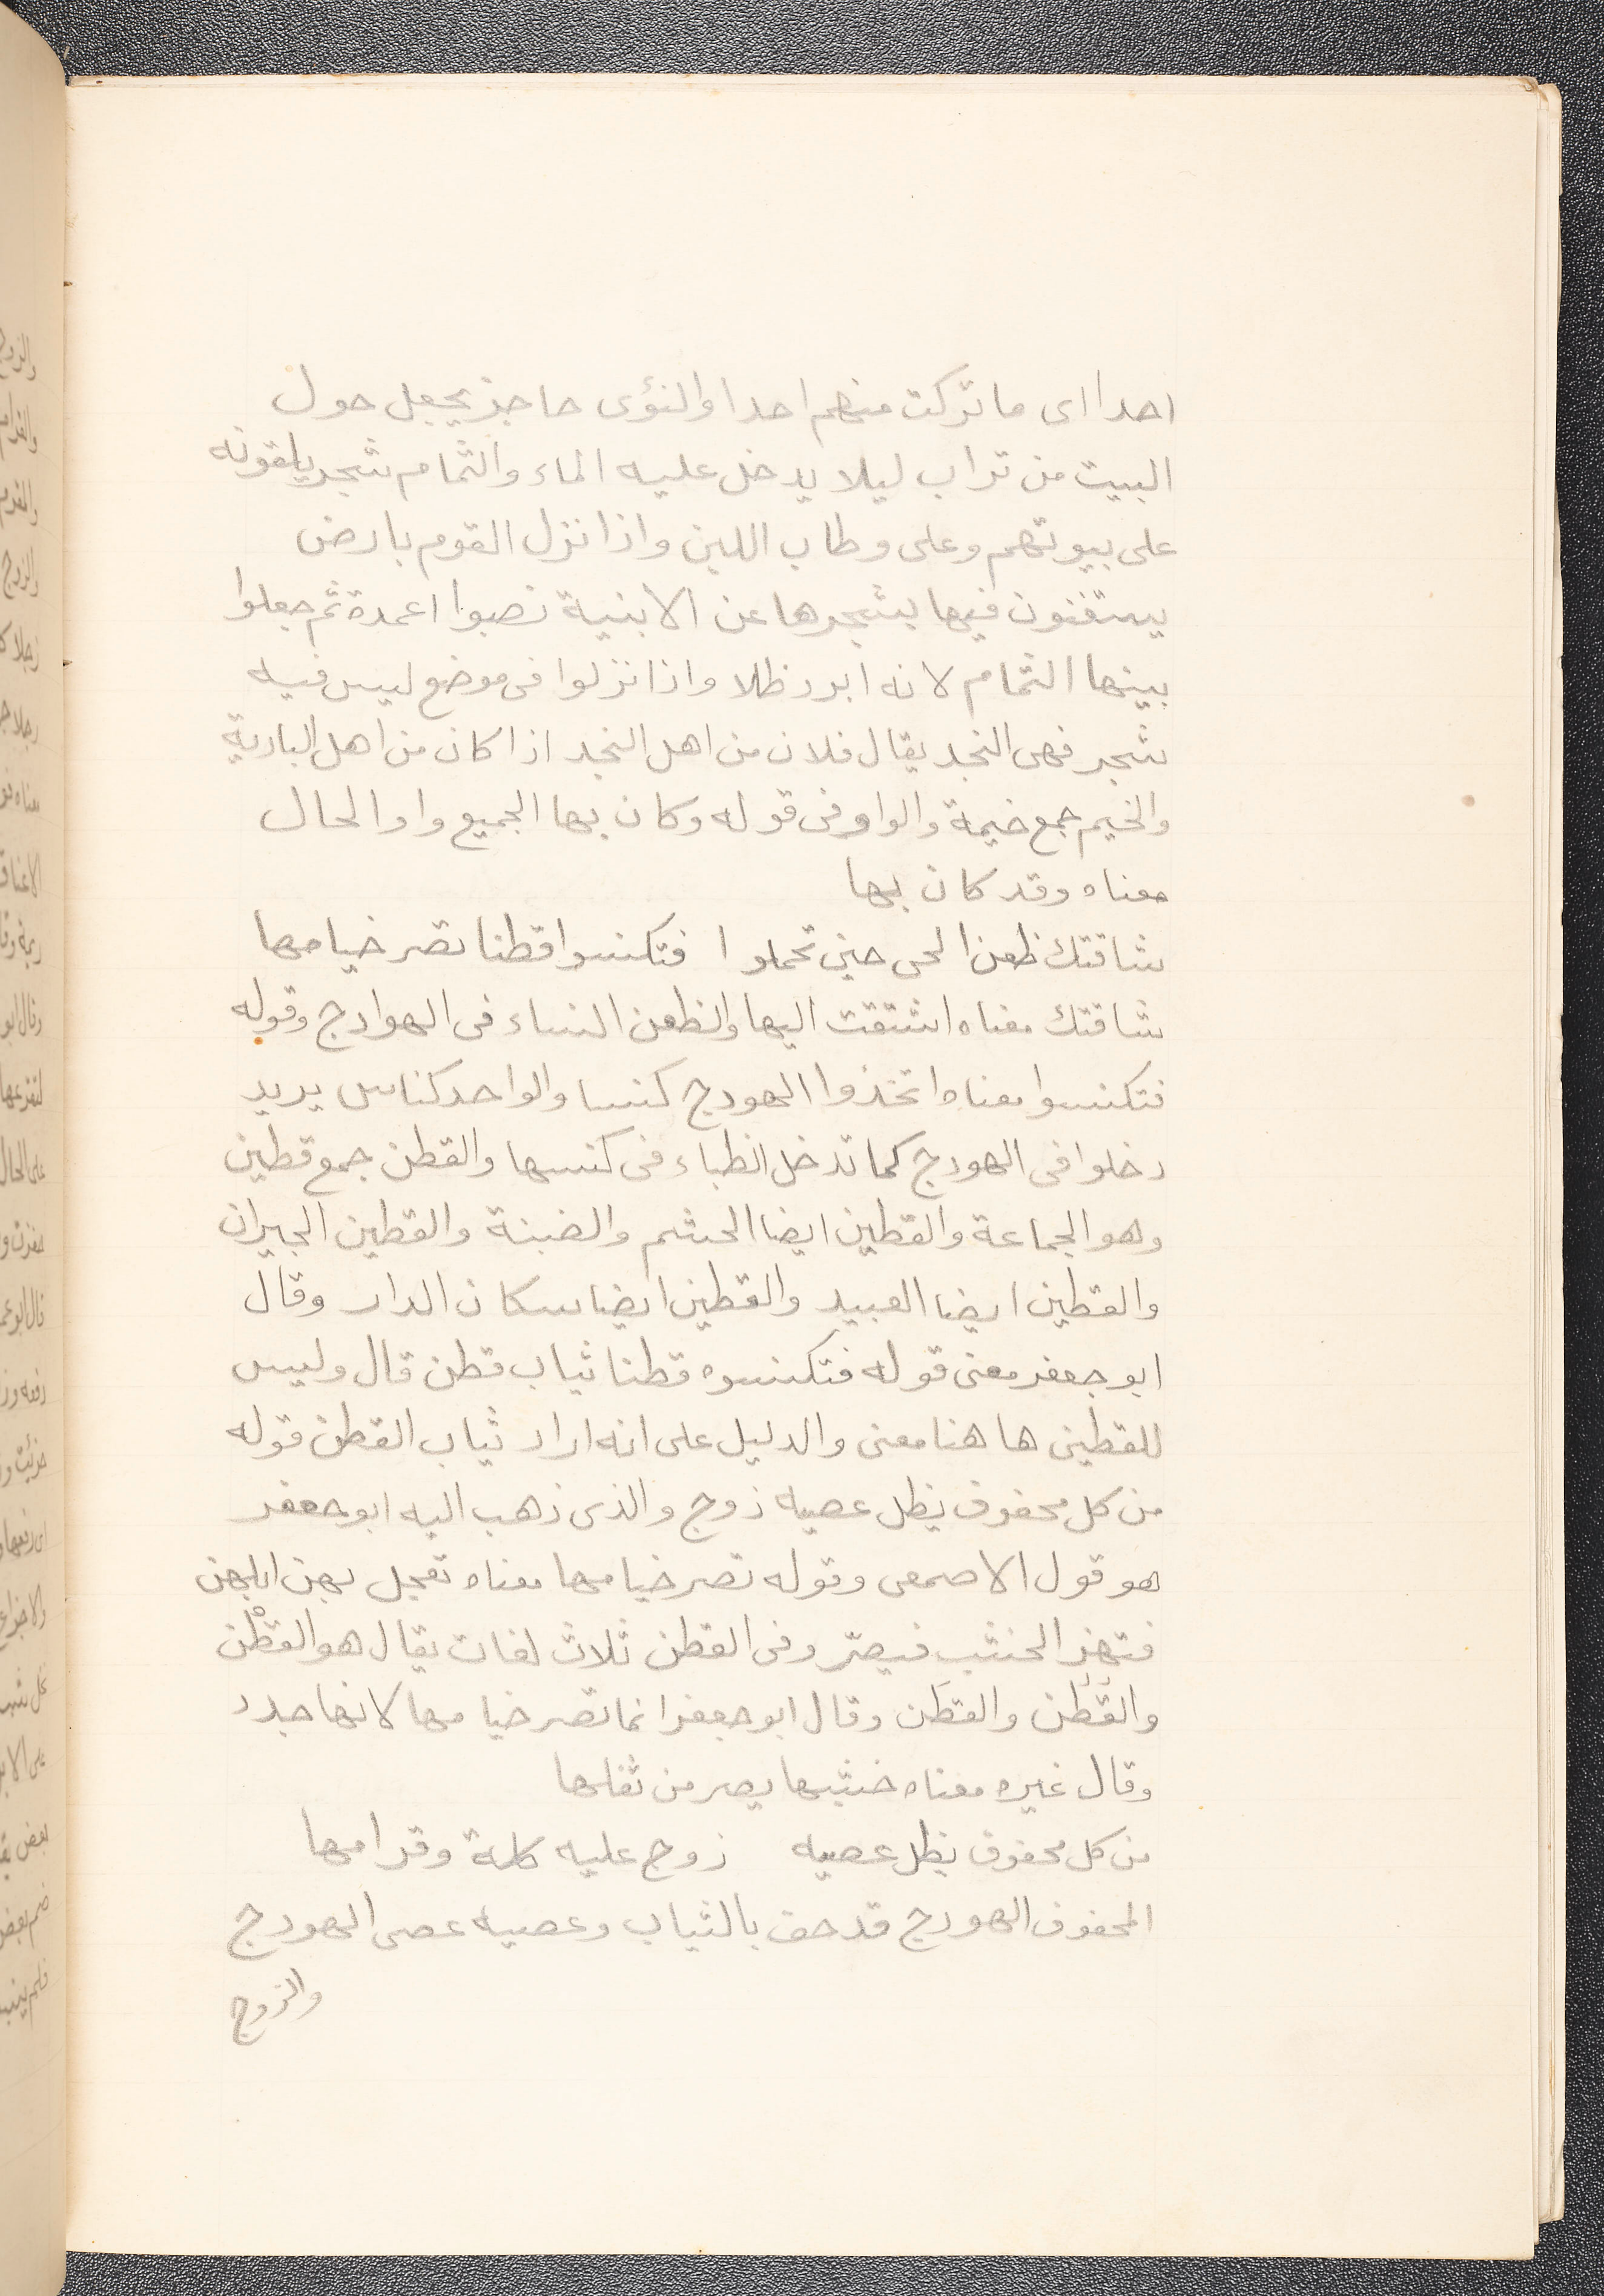 احدا اى ما تركت منهم احدا والنؤى حاجز يجعل حول
البيت من تراب ليلا يدخل عليه الماء والثمام شجر يلقونه
على بيوتهم وعلى وطاب اللبن واذا نزل القوم بارض
يستغنون فيها بشجرها عن الابنية نصبوا اعمدة ثم جعلوا
بينها الثمام لانه ابرد ظلا واذا نزلوا فى موضع ليس فيه
شجر فهى النجد يقال فلان من اهل النجد اذا كان من اهل البادية
والخيم جمع خيمة والواو فى قوله وكان بها الجميع واو الحال
معناه وقد كان بها
شاقتك ظعن الحى حين تحملوا فتكنسوا قطنا تصر خيامها
شاقتك معناه اشتقت اليها والظعن النساء فى الهوادج وقوله
فتكنسوا معناه اتخذوا الهودج كنسا والواحد كناس يريد
دخلوا فى الهودج كما تدخل الظباء فى كنسها والقطن جمع قطين
وهو الجماعة والقطين ايضا الحشم والضبنة والقطين الجيران
والقطين ايضا العبيد والقطين ايضا سكان الدار وقال
ابو جعفر معنى قوله فتكنسوه قطنا ثياب قطن قال وليس
للقطين ها هنا معنى والدليل على انه اراد ثياب القطن قوله
من كل محفوف يظل عصيه زوج والذى ذهب اليه ابو جعفر
هو قول الاصمعى وقوله تصر خيامها معناه تعجل بهن ابلهن
فتهز الخشب فيصرّ وفى القطن ثلاث لغات يقال هو القطْن
والقطن والقطن وقال ابو جعفر انما تصر خيامها لانها جدد
وقال غيره معناه خشبها يصر من ثقلها
من كل محفوف يظل عصيه زوج عليه كلة وقرامها
المحفوف الهودج قد حف بالثياب وعصيه عصى الهودج
والزوج